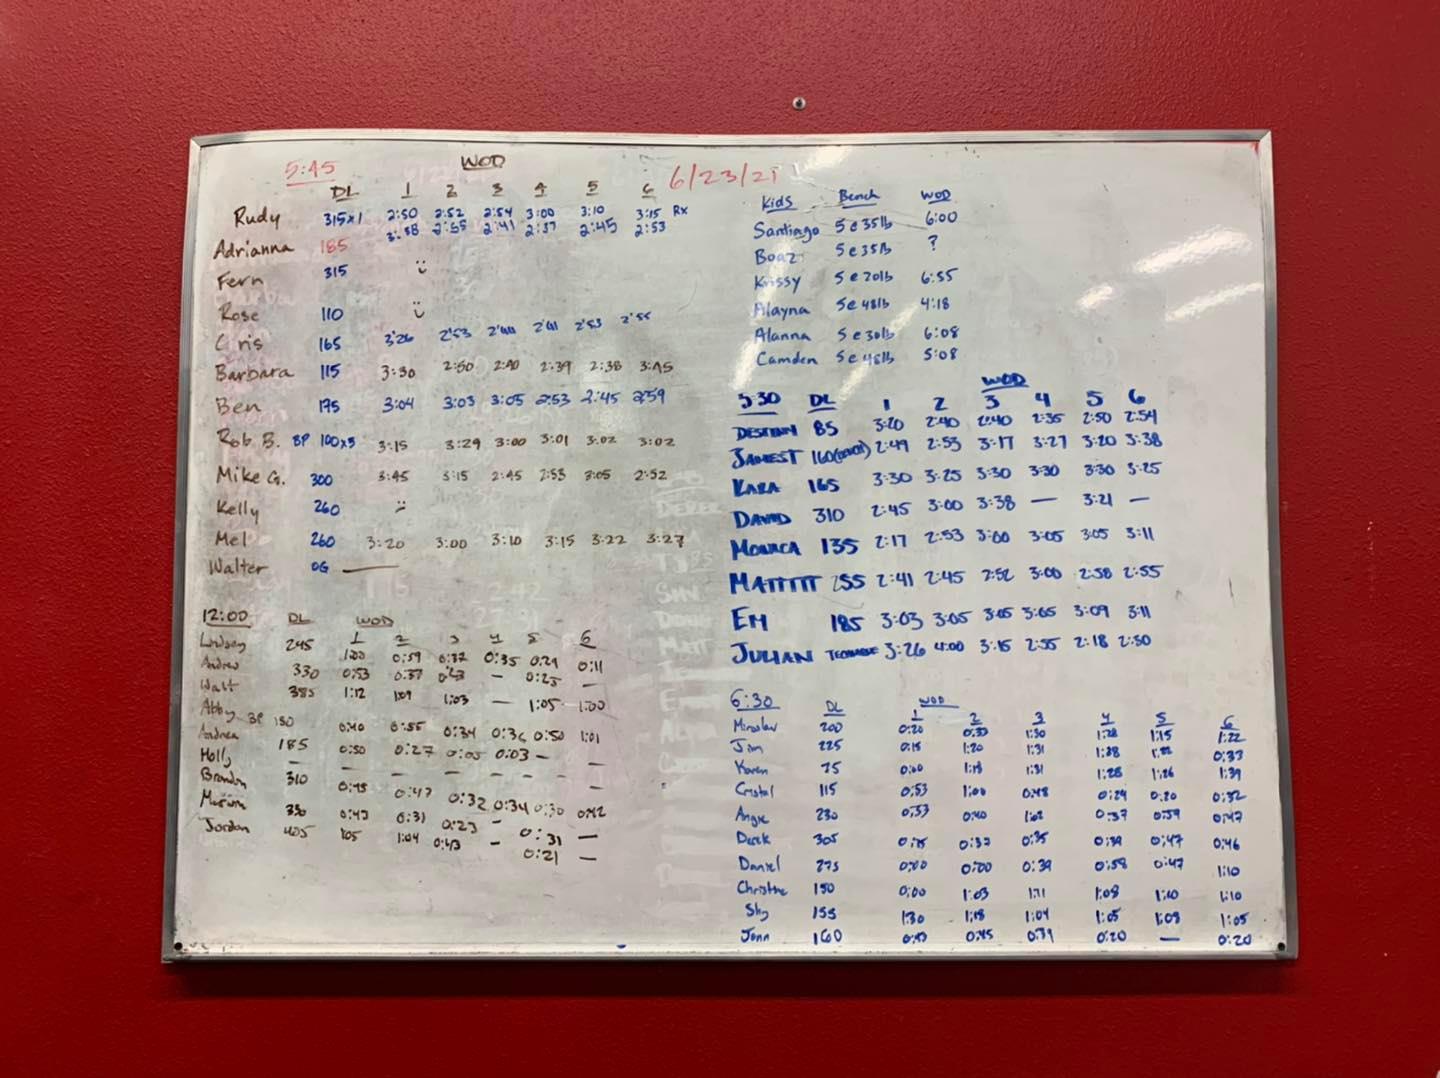 5:45 WOD 6/23/21
DL 1 2 3 4 5 6
Rudy 315x1 2:50 2:52 2:54 3:00 3:10 3:15 Rx
Adrianna 185 3:58 2:55 2:41 2:37 2:45 2:53
Fern 315
Rose 110
Cris 165 3:26 2:53 2:41 2:53 2:55
Barbara 115 3:30 2:50 2:40 2:39 2:38 3:45
Ben 175 3:04 3:03 3:05 2:53 2:45 2:59
Rob B. BP 100x5 3:15 3:29 3:00 3:01 3:02 3:02
Mike G. 300 3:45 3:15 2:45 2:53 3:05 2:52
Kelly 260
Mel 260 3:20 3:00 3:10 3:15 3:22 3:27
Walter OG —
12:00 DL WOD
1 2 3 4 5 6
Lindsey 245 1:00 0:59 0:32 0:35 0:29 0:11
Andrew 330 0:53 0:37 — 0:25 —
Walt 385 1:12 1:09 1:03 — 1:05 1:00
Abby BP 130 0:40 0:55 0:34 0:36 0:50 1:01
Andrea 185 0:50 0:27 0:05 0:03 — —
Holly — — — — — — —
Brandon 310 0:45 0:47 0:32 0:34 0:30 0:42
330 0:43 0:31 0:23 — 0:31 —
Jordan 405 1:04 0:43 — 0:21 —
Kids Bench WOD
Santiago 5@35lb 6:00
Boaz 5@35lb ?
Krissy 5@20lb 6:55
Alayna 5@48lb 4:18
Alanna 5@30lb 6:08
Camden 5@48lb 5:08
WOD
5:30 DL 1 2 3 4 5 6
DESTINY 85 3:20 2:40 2:40 2:35 2:50 2:54
JAMEST 160 2:49 2:53 3:17 3:27 3:20 3:38
KARA 165 3:30 3:25 3:30 3:30 3:30 3:25
DAVID 310 2:45 3:00 3:38 — 3:21 —
MONICA 135 2:17 2:53 3:00 3:05 3:05 3:11
MATTTTT 255 2:41 2:45 2:52 3:00 2:58 2:55
EM 185 3:03 3:05 3:05 3:05 3:09 3:11
JULIAN TECHNIQUE 3:26 4:00 3:15 2:55 2:18 2:30
6:30 DL WOD
1 2 3 4 5 6
Miroslav 200 0:20 0:33 1:30 1:28 1:15 1:22
Jim 225 0:15 1:20 1:31 1:28 0:33
Karen 75 0:00 1:18 1:31 1:28 1:26 1:39
Cristal 115 0:53 1:00 0:48 0:24 0:20 0:32
Angie 230 0:53 0:40 1:02 0:37 0:59 0:47
Derek 305 0:15 0:32 0:35 0:39 0:47 0:46
Daniel 275 0:00 0:00 0:39 0:58 0:47 1:10
Christine 150 0:00 1:03 1:11 1:08 1:10 1:10
Sky 155 1:30 1:18 1:04 1:05 1:09 1:05
Jenn 160 0:43 0:45 0:39 0:20 — 0:20